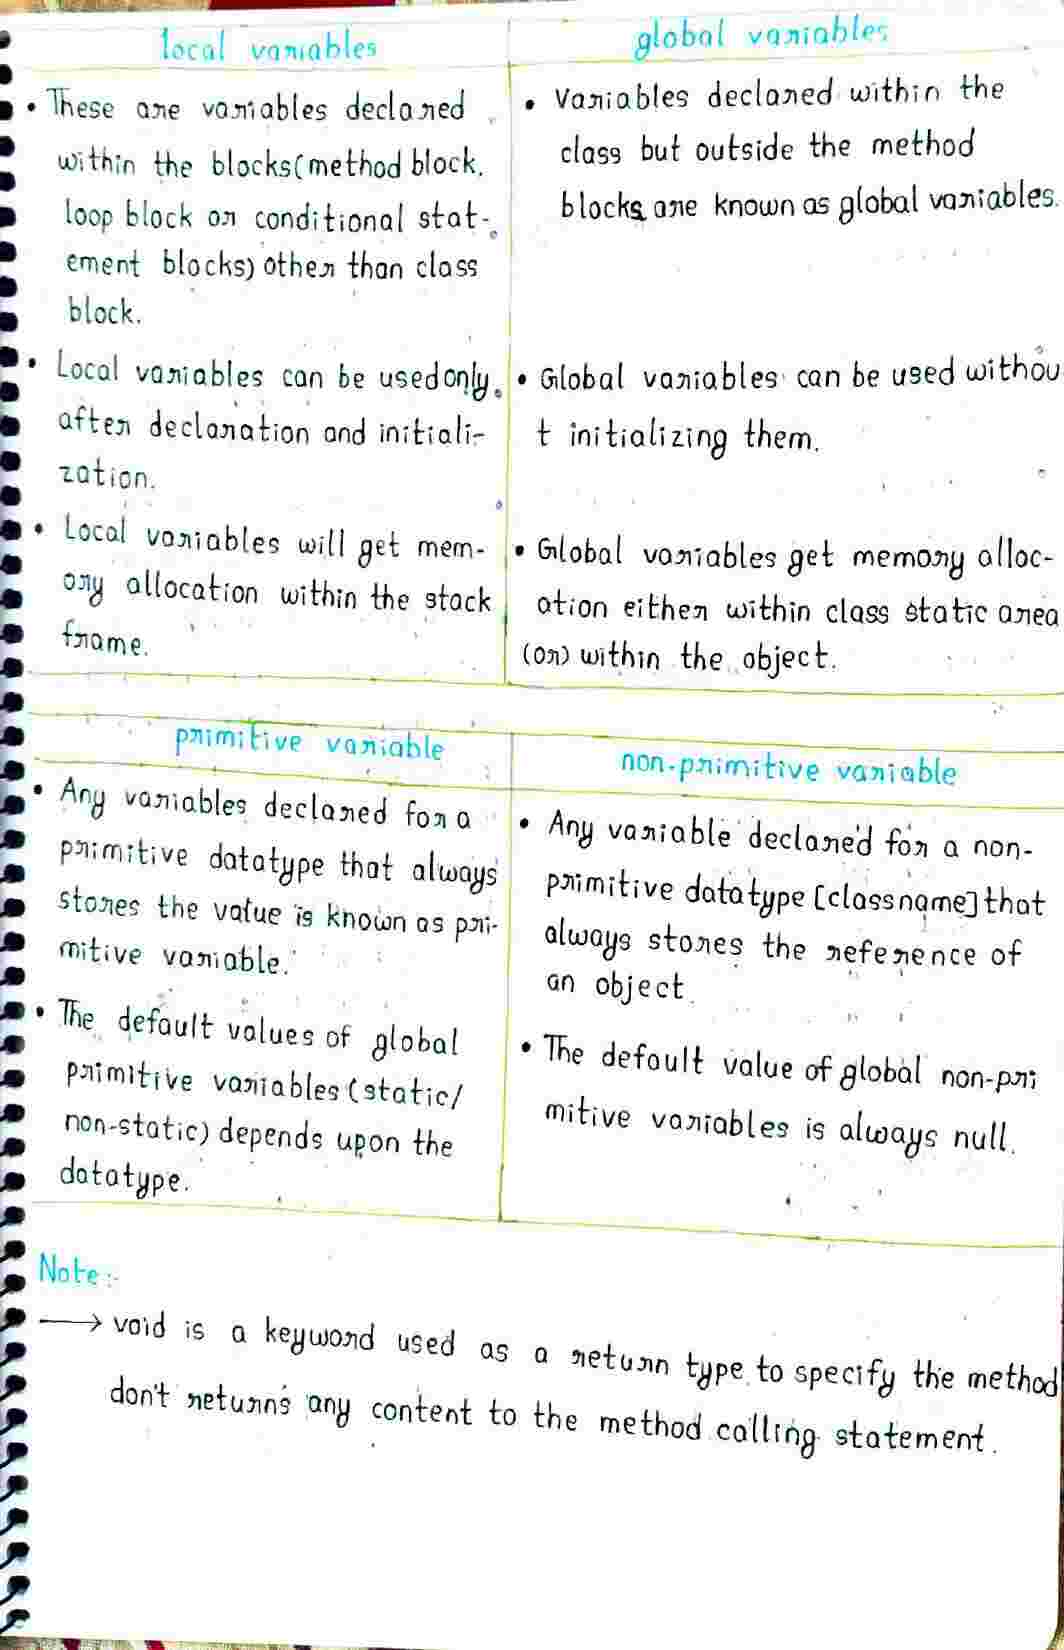 local variables
• These are variables declared
within the blocks(method block,
loop block or conditional stat-
ement blocks) other than class
block.
• Local variables can be used only
after declaration and initiali-
zation.
• Local variables will get mem-
ory allocation within the stack
frame.
global variables
• Variables declared within the
class but outside the method
blocks are known as global variables.
• Global variables can be used withou
t initializing them.
• Global variables get memory alloc-
ation either within class static area
(or) within the object.
primitive variable
• Any variables declared for a
primitive datatype that always
stores the value is known as pri-
mitive variable.
• The default values of global
primitive variables (static/
non-static) depends upon the
datatype.
non-primitive variable
• Any variable declared for a non-
primitive datatype [classname] that
always stores the reference of
an object.
• The default value of global non-pri
mitive variables is always null.
Note:-
→ void is a keyword used as a return type to specify the method
don't returns any content to the method calling statement.